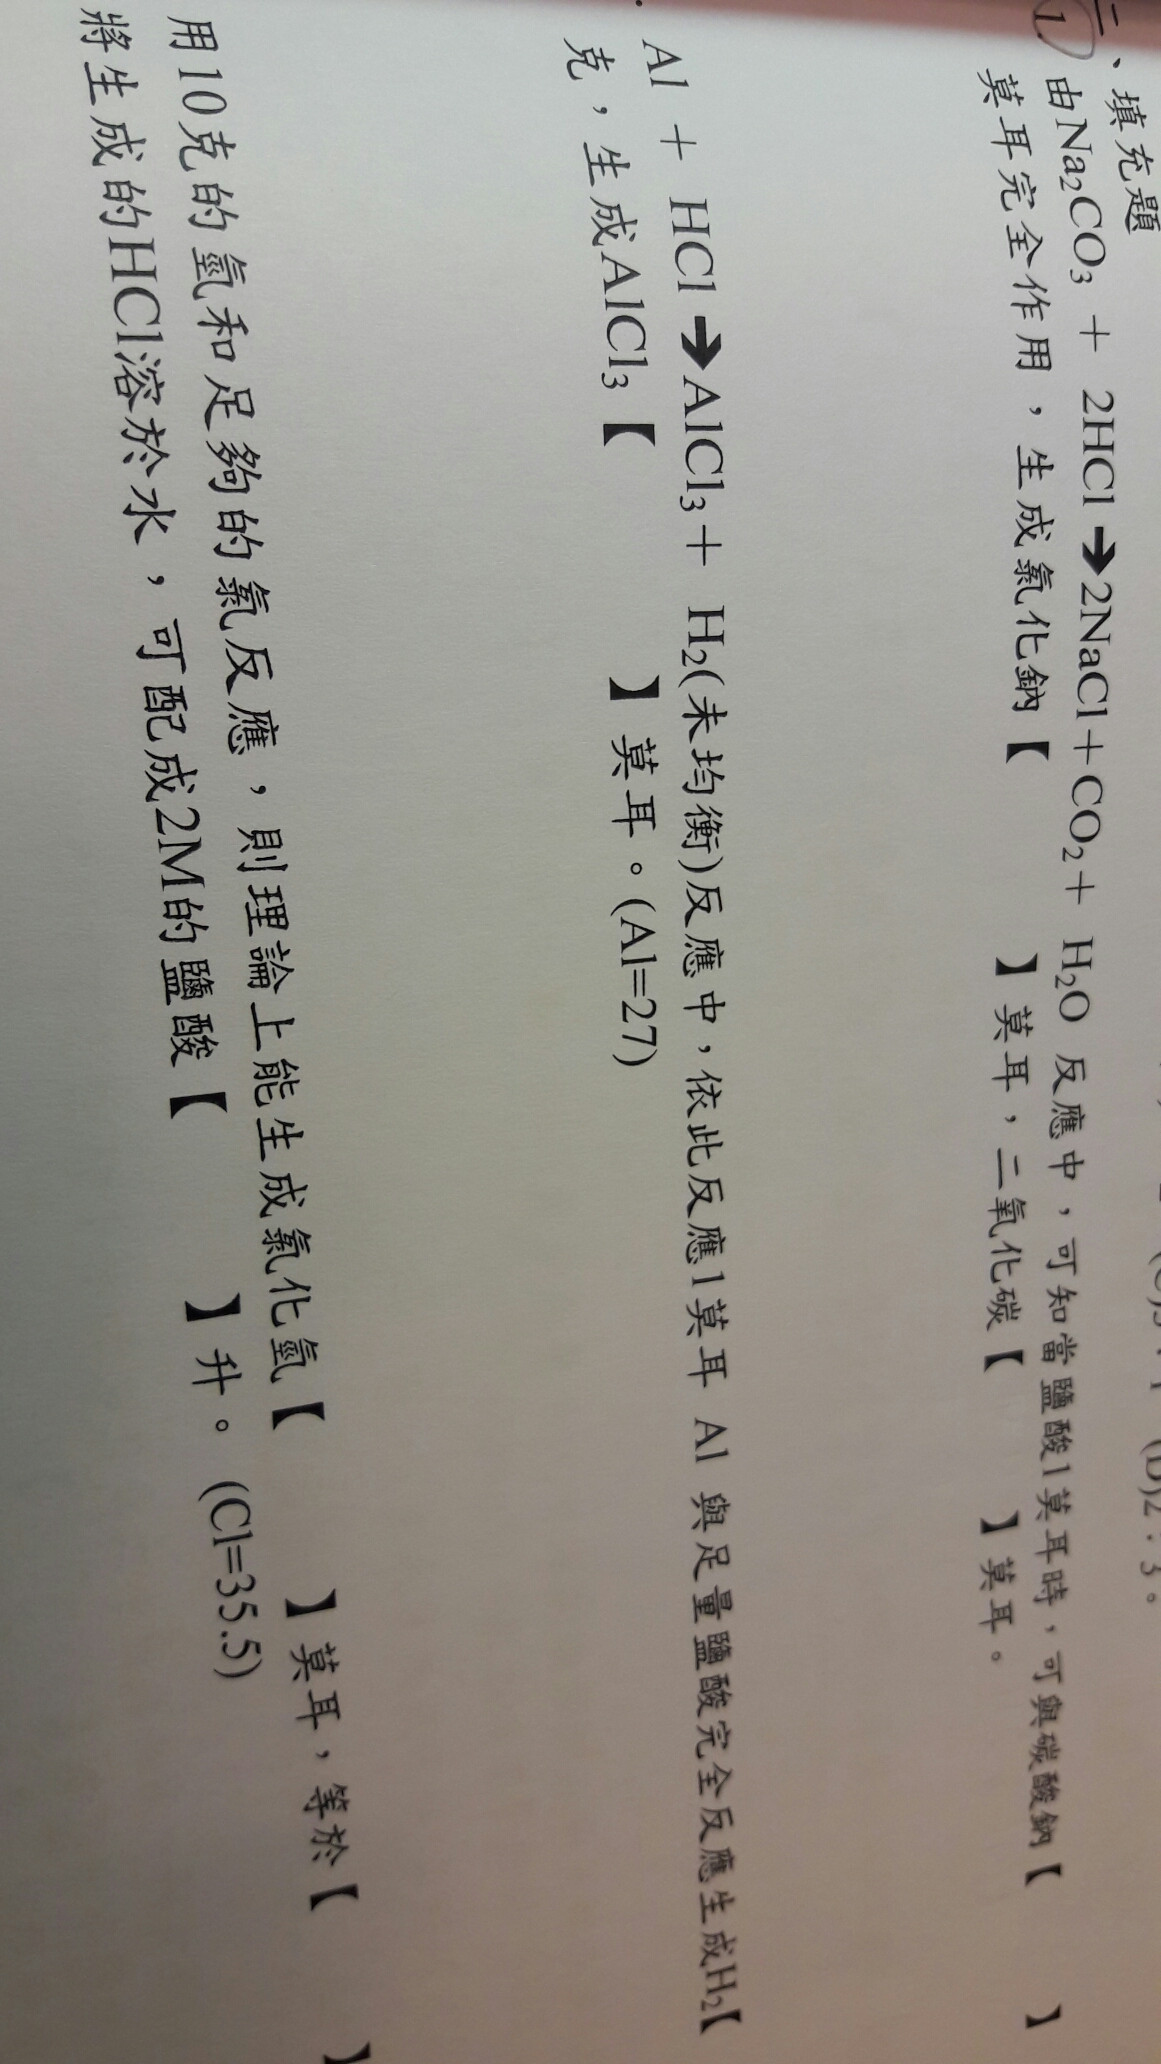 二、填充題
1. 由Na₂CO₃ + 2HCl➔2NaCl+CO₂+ H₂O 反應中，可知當鹽酸1莫耳時，可與碳酸鈉【 】
莫耳完全作用，生成氯化鈉【 】莫耳，二氧化碳【 】莫耳。
Al + HCl➔AlCl₃+ H₂(未均衡)反應中，依此反應1莫耳 Al 與足量鹽酸完全反應生成H₂【
克，生成AlCl₃【 】莫耳。(Al=27)
用10克的氫和足夠的氯反應，則理論上能生成氯化氫【 】莫耳，等於【 】
將生成的HCl溶於水，可配成2M的鹽酸【 】升。(Cl=35.5)